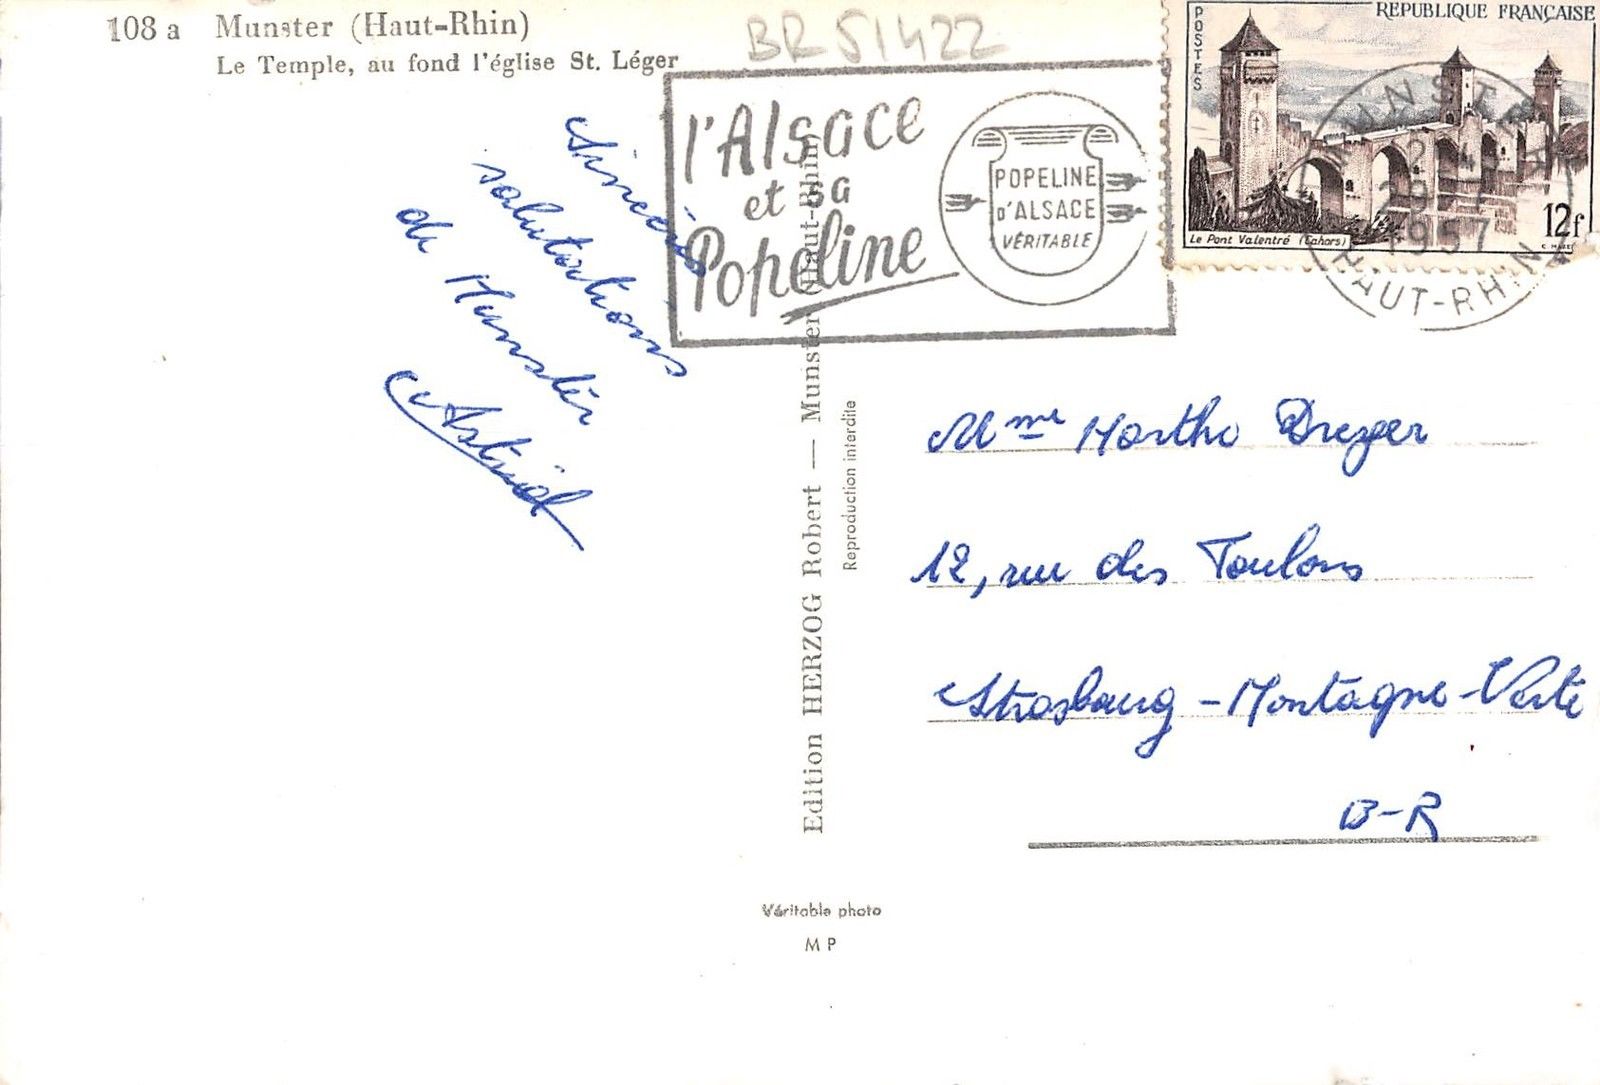 108 a Munster (Haut-Rhin)
Le Temple, au fond l'église St. Léger
BR 51422
l'Alsace
et sa
Popeline
POPELINE
D'ALSACE
VÉRITABLE
POSTES
REPUBLIQUE FRANÇAISE
Le Pont Valentré (Cahors)
12f
MUNSTER
29
1957
HAUT-RHIN
Sincères
salutations
de Munster
Astrid
Edition HERZOG Robert — Munster (Haut-Rhin)
Reproduction interdite
Mme Martha Dreyer
12, rue des Toulons
Strasbourg - Montagne-Verte
B-R
Véritable photo
M P